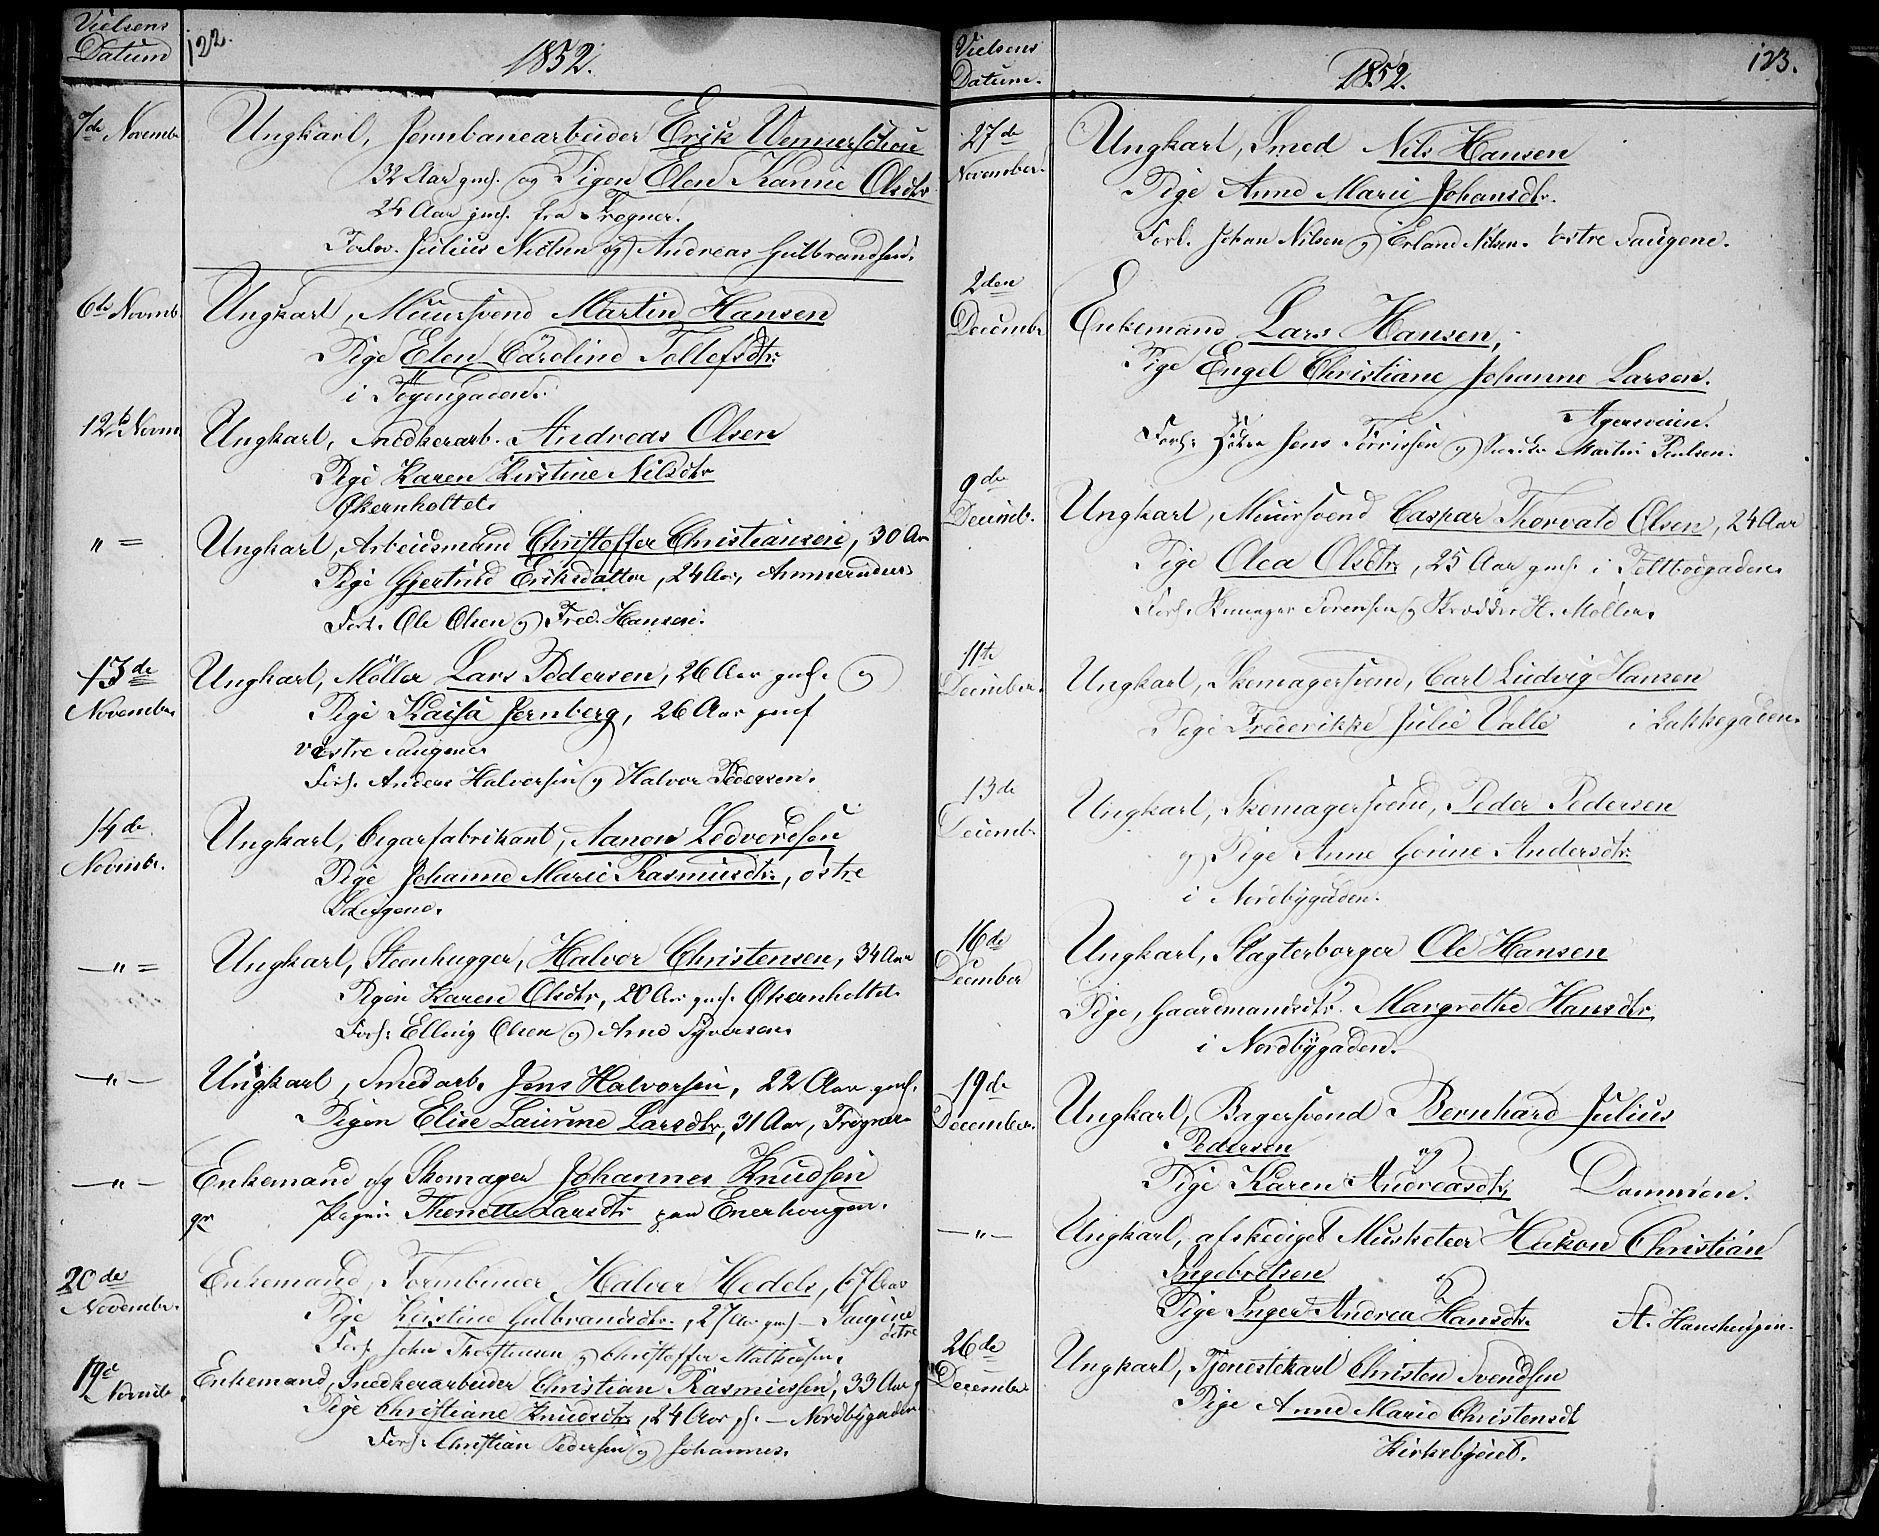 Vielsens
Datum
122.
1852.
7de Novembr
Ungkarl, Jernbanearbeider Erik Wennerschou
32 Aar gml. og Pigen Elen Karine Olsdtr
24 Aar gml. fra Frogner.
Forlov. Julius Nielsen og Andreas Gulbrandsen.
6te Novmb.
Ungkarl, Muursvend Martin Hansen
Pige Elen Caroline Tollefsdtr
i
12te Novm.
Ungkarl, Snedkerarb. Andreas Olsen
Pige Karen Kirstine Nilsdtr
Økernholtet.
" =
Ungkarl, Arbeidsmand Christoffer Christiansen, 30 Aar
Pige Gjertrud Eriksdatter, 24 Aar, Ammerudens
Forl. Ole Olsen og Fred. Hansen.
13de
November
Ungkarl, Møller Lars Pedersen, 26 Aar gml. og
Pige Kaisa Jernberg, 26 Aar gml
vestre Saugene.
Forl. Anders Halvorsen og Halvor Pedersen.
14de
Novmbr.
Ungkarl, Cigarfabrikant, Aanon Ledvordsen
Pige Johanne Marie Rasmusdtr., östre
Saugene.
—"=
Ungkarl, Steenhugger, Halvor Christensen, 34 Aar
Pigen Karen Olsdtr, 20 Aar gml. Økernholtet.
Forl: Elling Olsen og Arne Syversen.
—"—
Ungkarl, Smedarb. Jens Halvorsen, 22 Aar gml.
Pigen Elise Laurine Larsdtr, 31 Aar, Frogner.
—"—
Enkemand og Skomager Johannes Knudsen
Pigen Thonette Larsdtr paa Enerhougen.
20de
Novembr.
Enkemand, Halver Hedels, 67 Aar
Pige Kirstine Gulbrandsdtr., 27 Aar gml — Saugene
östre
Forl. John og Christoffer Mathiesen.
19de
Novmbr.
Enkemand, Snedkerarbeider Christian Rasmussen, 33 Aar,
Pige Christiane Knudsdtr, 24 Aar gl. — Nordbygaden
Forl. Christian Pedersen og Johannes.
Vielsens
Datum.
1852.
123.
27de
November.
Ungkarl, Smed Nils Hansen
Pige Anne Marie Johansdtr.
Forl. Johan Nilsen og Erland Nilsen. östre Saugene.
2den
Decembr
Enkemand Lars Hansen,
Pige Engel Christiane Johanne Larsen.
Agersveien.
Forl: Jens og Martin Poulsen.
9de
Decemb.
Ungkarl, Muursvend Caspar Thorvald Olsen, 24 Aar
Pige Olea Olsdtr, 25 Aar gml. i Teltbodgaden.
Forl. Skomager Sörensen og Skrædder H. Møller.
11te
December.
Ungkarl, Skomagersvend, Carl Ludvig Hansen
Pige Frederikke Julie Valle i Bakkegaden.
13de
Decemb.
Ungkarl, Skomagersvend, Peder Pedersen
og Pige Anne Gorine Andersdtr.
i Nordbygaden.
16de
December
Ungkarl, Slagterborger Ole Hansen
Pige, Gaardmandsdtr. Margrethe Hansdtr.
i Nordbygaden.
19de
December.
Ungkarl, Bagersvend Bernhard Julius
Pedersen
og
Pige Karen Andreasdtr, Dammen.
—"—
Ungkarl, afskediget Musketeer Hakon Christian
Ingebretsen
og
Pige Inger Andrea Hansdtr. St. Hanshaugen.
26de
December
Ungkarl, Tjenestekarl Christen Svendsen
Pige Anne Marie Christensdt
Kirkebyeiet.